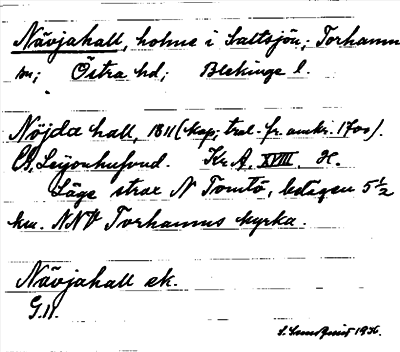 Nävjahall, holme i Saltsjön; Torhamn
sn; Östra hd; Blekinge l.
Nöjda hall, 1811 (kop; trol. fr. omkr. 1700).
CG. Leijonhufvud. Kr.A. XVIII. H.
Läge strax N Tomtö, belägen 5 1/2
km. NNV Torhamns kyrka.
Nävjahall ek.
G.H.
S. Lundquist 1936.